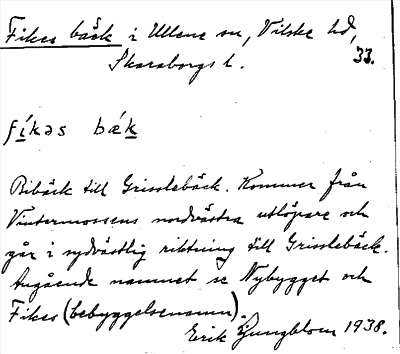 Fikes bäck i Ullene sn, Vilske hd,
Skaraborgs l.
33.
fíkəs bæ̀k
Bibäck till Grisslebäck. Kommer från
Vintermossens nordvästra utlöpare och
går i sydvästlig riktning till Grisslebäck.
Angående namnet se Nybygget och
Fikes (bebyggelsenamn).
Erik Ljungblom 1938.